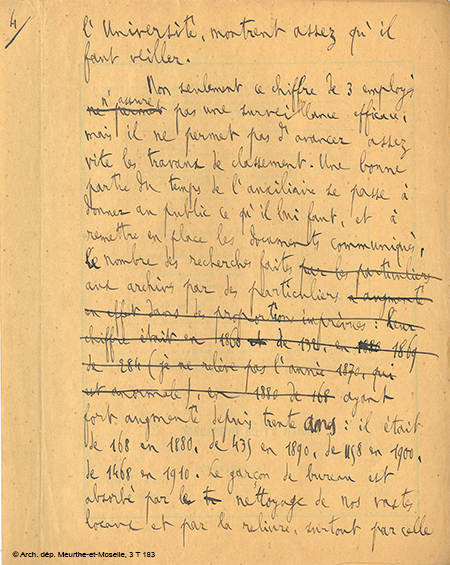 4/
l'Université, montrent assez qu'il
faut veiller.
Non seulement ce chiffre de 3 employés
n'assure
ne permet pas une surveillance efficace,
mais il ne permet pas d'avancer assez
vite les travaux de classement. Une bonne
partie du temps de l'auxiliaire se passe à
donner au public ce qu'il lui faut, et à
remettre en place les documents communiqués,
le nombre des recherches faites par les particuliers
aux archives par des particuliers a augmenté
en effet dans des proportions imprévues : leur
chiffre était en 1860 et de 132, en 1880 1869
de 284 (je ne relève pas l'année 1870, qui
est anormale), en 1880 de 168 ayant
fort augmenté depuis trente ans : il était
de 168 en 1880, de 435 en 1890, de 1158 en 1900,
de 1468 en 1910. Le garçon de bureau est
absorbé par le nettoyage de nos vastes
locaux et par la reliure, surtout par celle
© Arch. dép. Meurthe-et-Moselle, 3 T 183